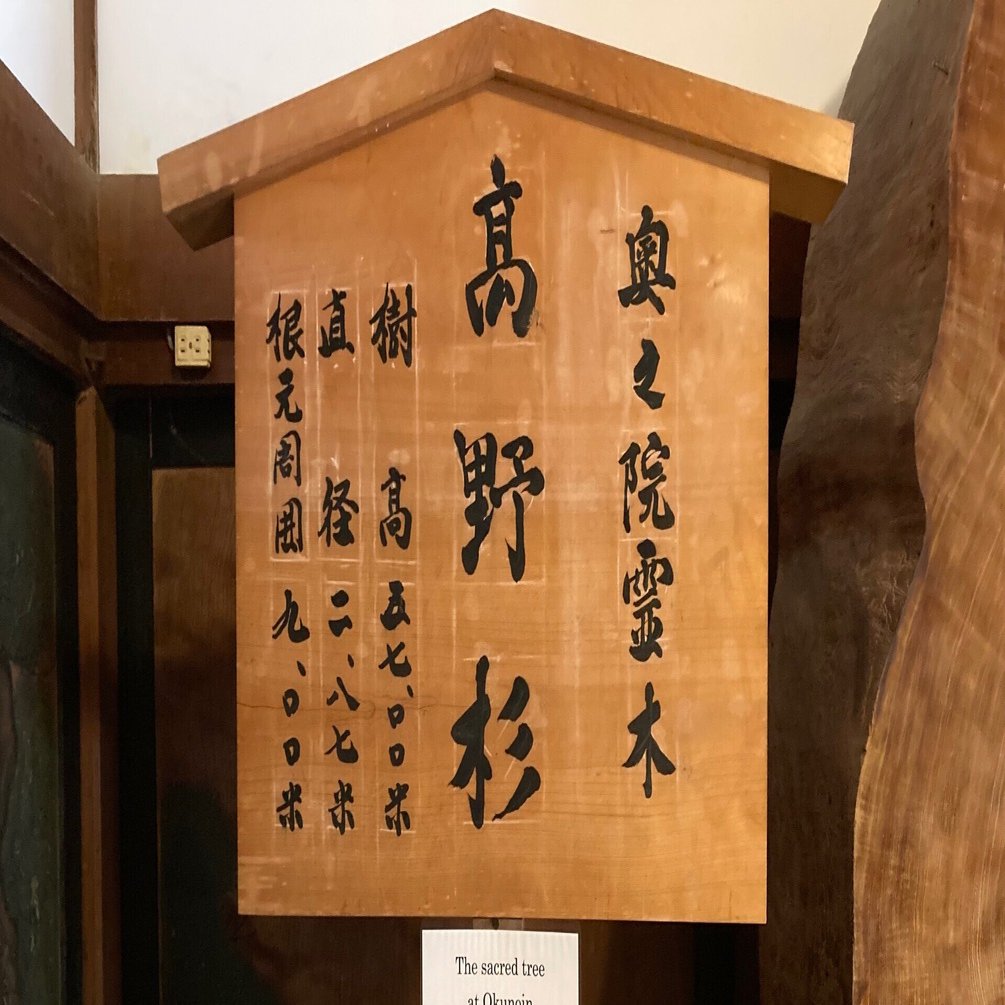 奥之院霊木
高野杉
樹高五七、〇〇米
直径二、八七米
根元周囲九、〇〇米
The sacred tree
at Okunoin